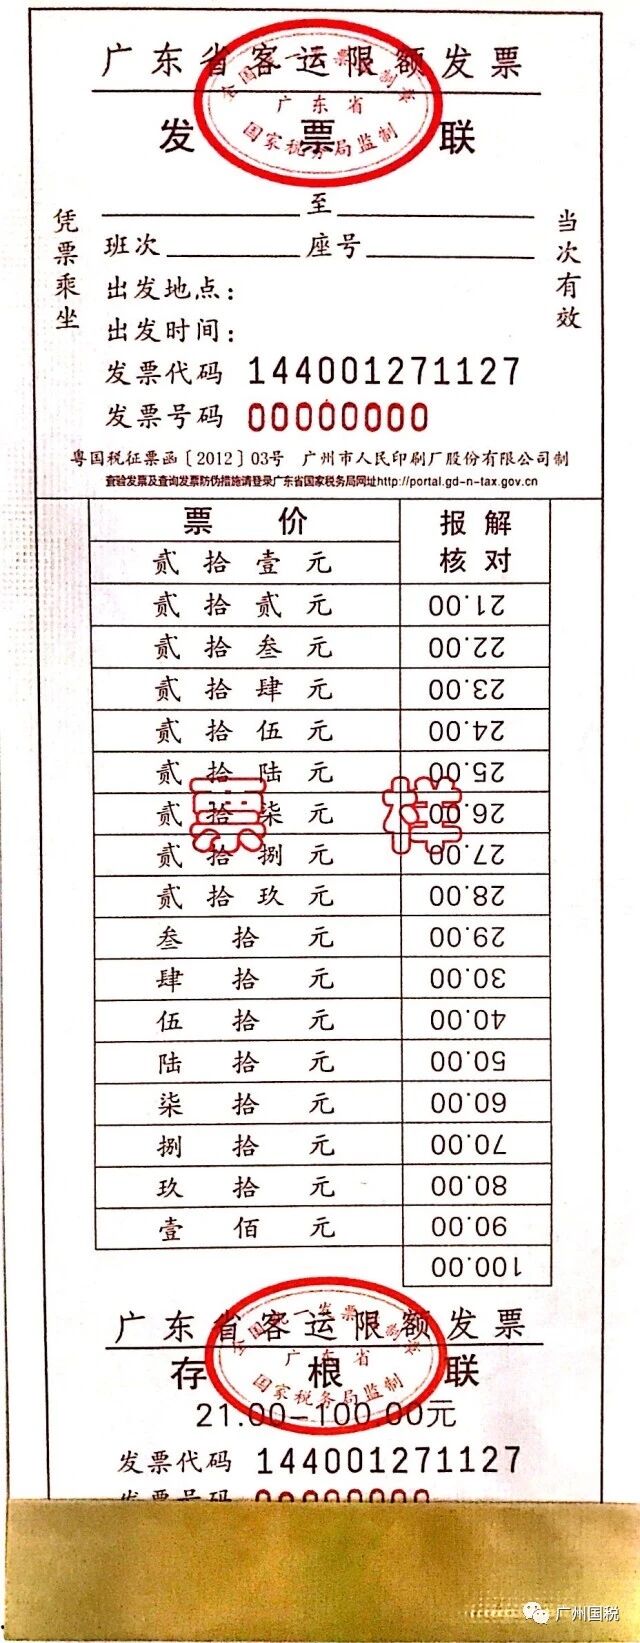 广东省客运限额发票
全国统一发票监制章
广东省
国家税务局监制
发票联
凭票乘坐
当次有效
至
班次 座号
出发地点：
出发时间：
发票代码 144001271127
发票号码 00000000
粤国税征票函〔2012〕03号 广州市人民印刷厂股份有限公司制
查验发票及查询发票防伪措施请登录广东省国家税务局网址http://portal.gd-n-tax.gov.cn
票价 报解
贰拾壹元 核对
贰拾贰元 21.00
贰拾叁元 22.00
贰拾肆元 23.00
贰拾伍元 24.00
贰拾陆元 25.00
票样
贰拾柒元 26.00
贰拾捌元 27.00
贰拾玖元 28.00
叁拾元 29.00
肆拾元 30.00
伍拾元 40.00
陆拾元 50.00
柒拾元 60.00
捌拾元 70.00
玖拾元 80.00
壹佰元 90.00
100.00
广东省客运限额发票
全国统一发票监制章
广东省
国家税务局监制
存根联
21.00-100.00元
发票代码 144001271127
发票号码 00000000
广州国税